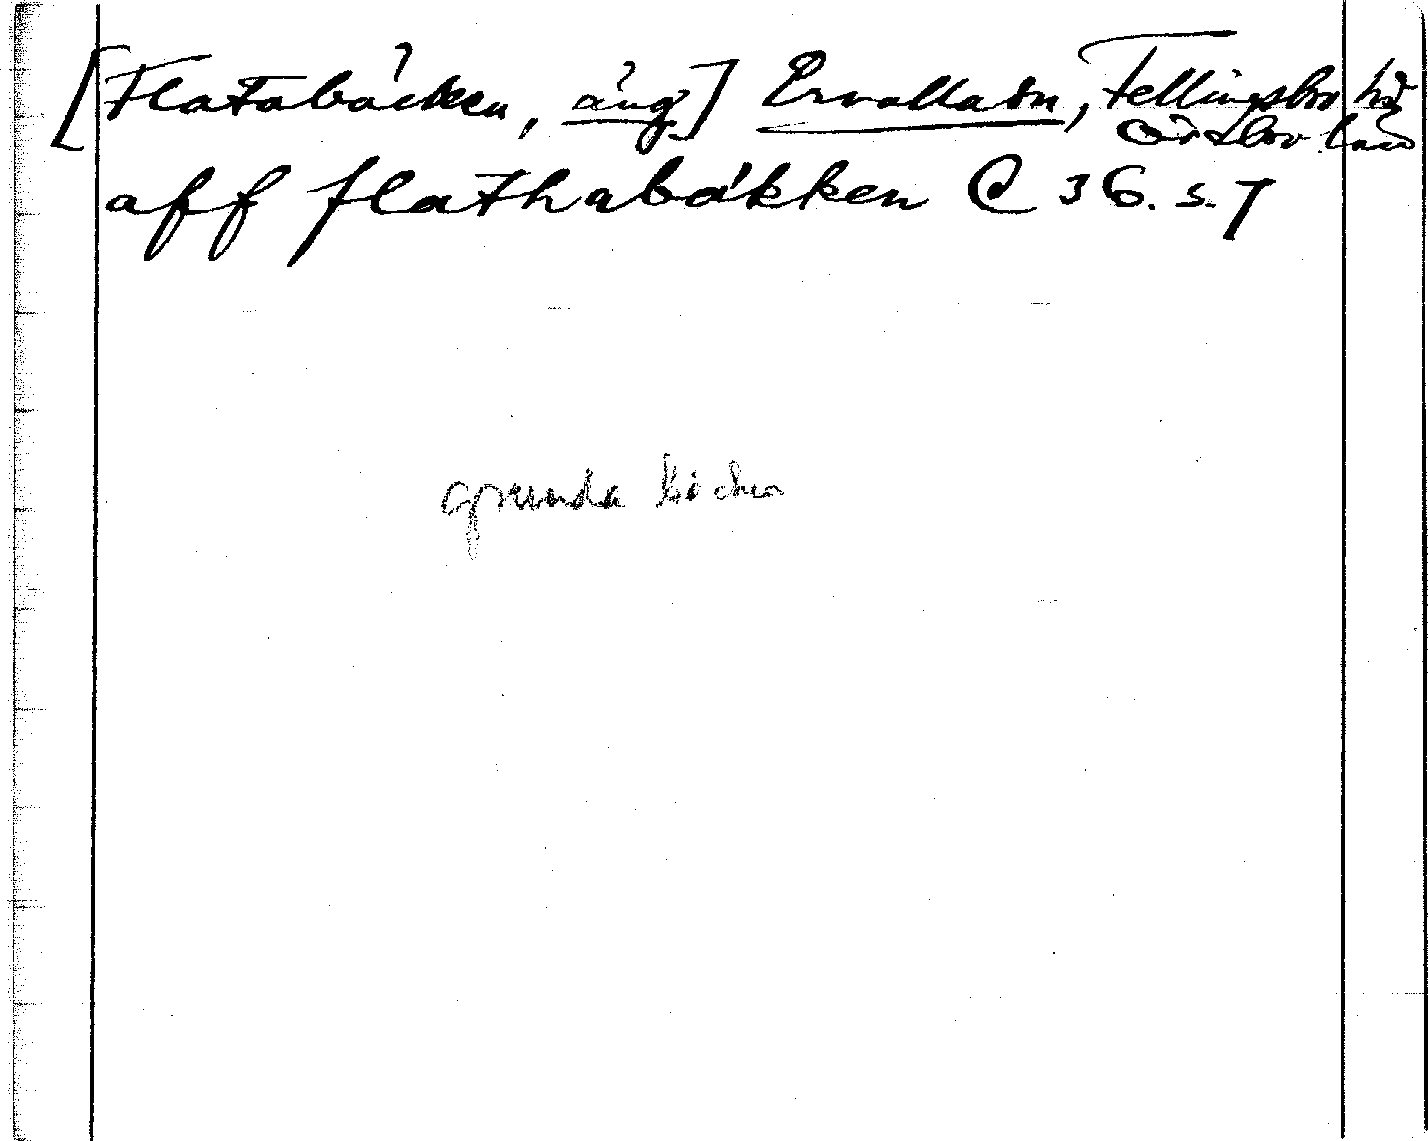 [Flatabäcken, äng] Ervalla sn, Fellingsbro hd
Örebro län
aff flathabäkken C 36. s. 7
grunda bäcken